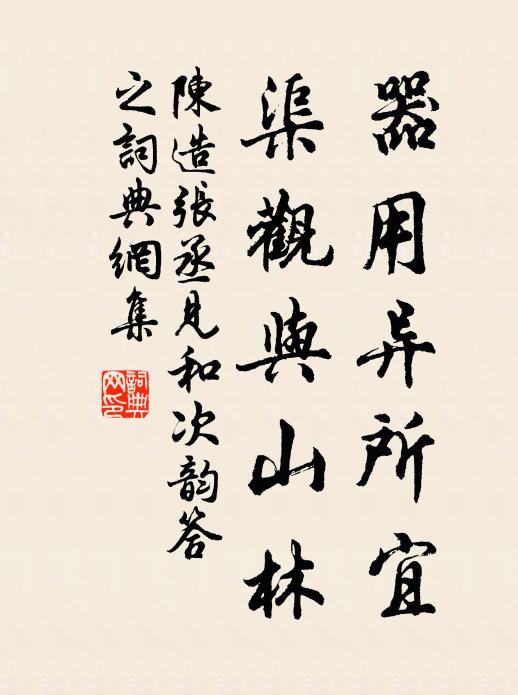 器用异所宜
渠觀與山林
陳造張丞見和次韵答
之詞典網集
詞典
网印